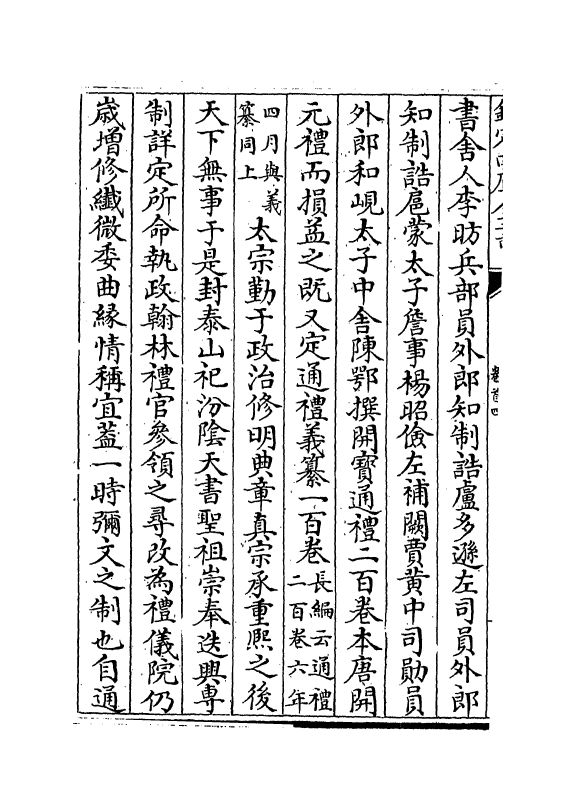 欽定四庫全書
卷首四
書舍人李昉兵部員外郎知制誥盧多遜左司員外郎
知制誥扈蒙太子詹事楊昭儉左補闕賈黄中司勛員
外郎和峴太子中舍陳鄂撰開寳通禮二百卷本唐開
元禮而損益之既又定通禮義纂一百卷長編云通禮二百卷六年
四月與義纂同上太宗勤于政治修明典章真宗承重熙之後
天下無事于是封泰山祀汾陰天書聖祖崇奉迭興專
制詳定所命執政翰林禮官參領之尋改為禮儀院仍
歳增修纖微委曲緣情稱宜蓋一時彌文之制也自通